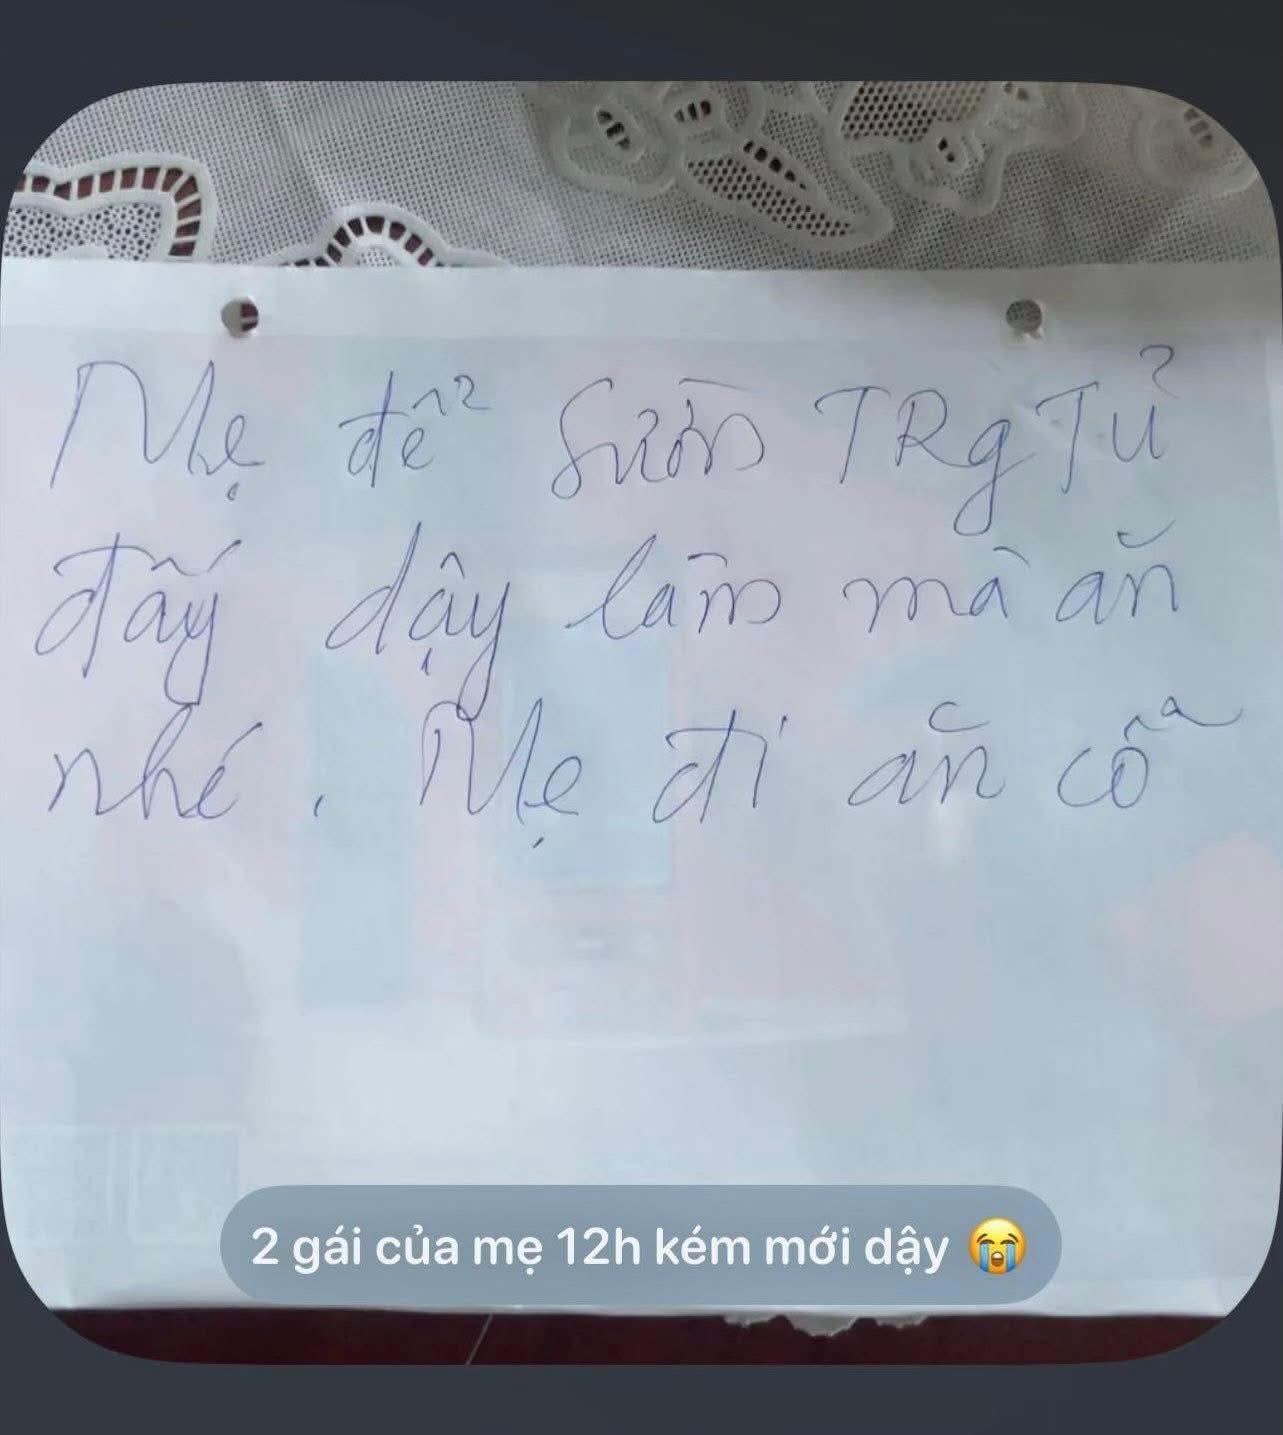 Mẹ để Sườn TRg Tủ
đấy dậy làm mà ăn
nhé. Mẹ đi ăn cỗ
2 gái của mẹ 12h kém mới dậy 😭